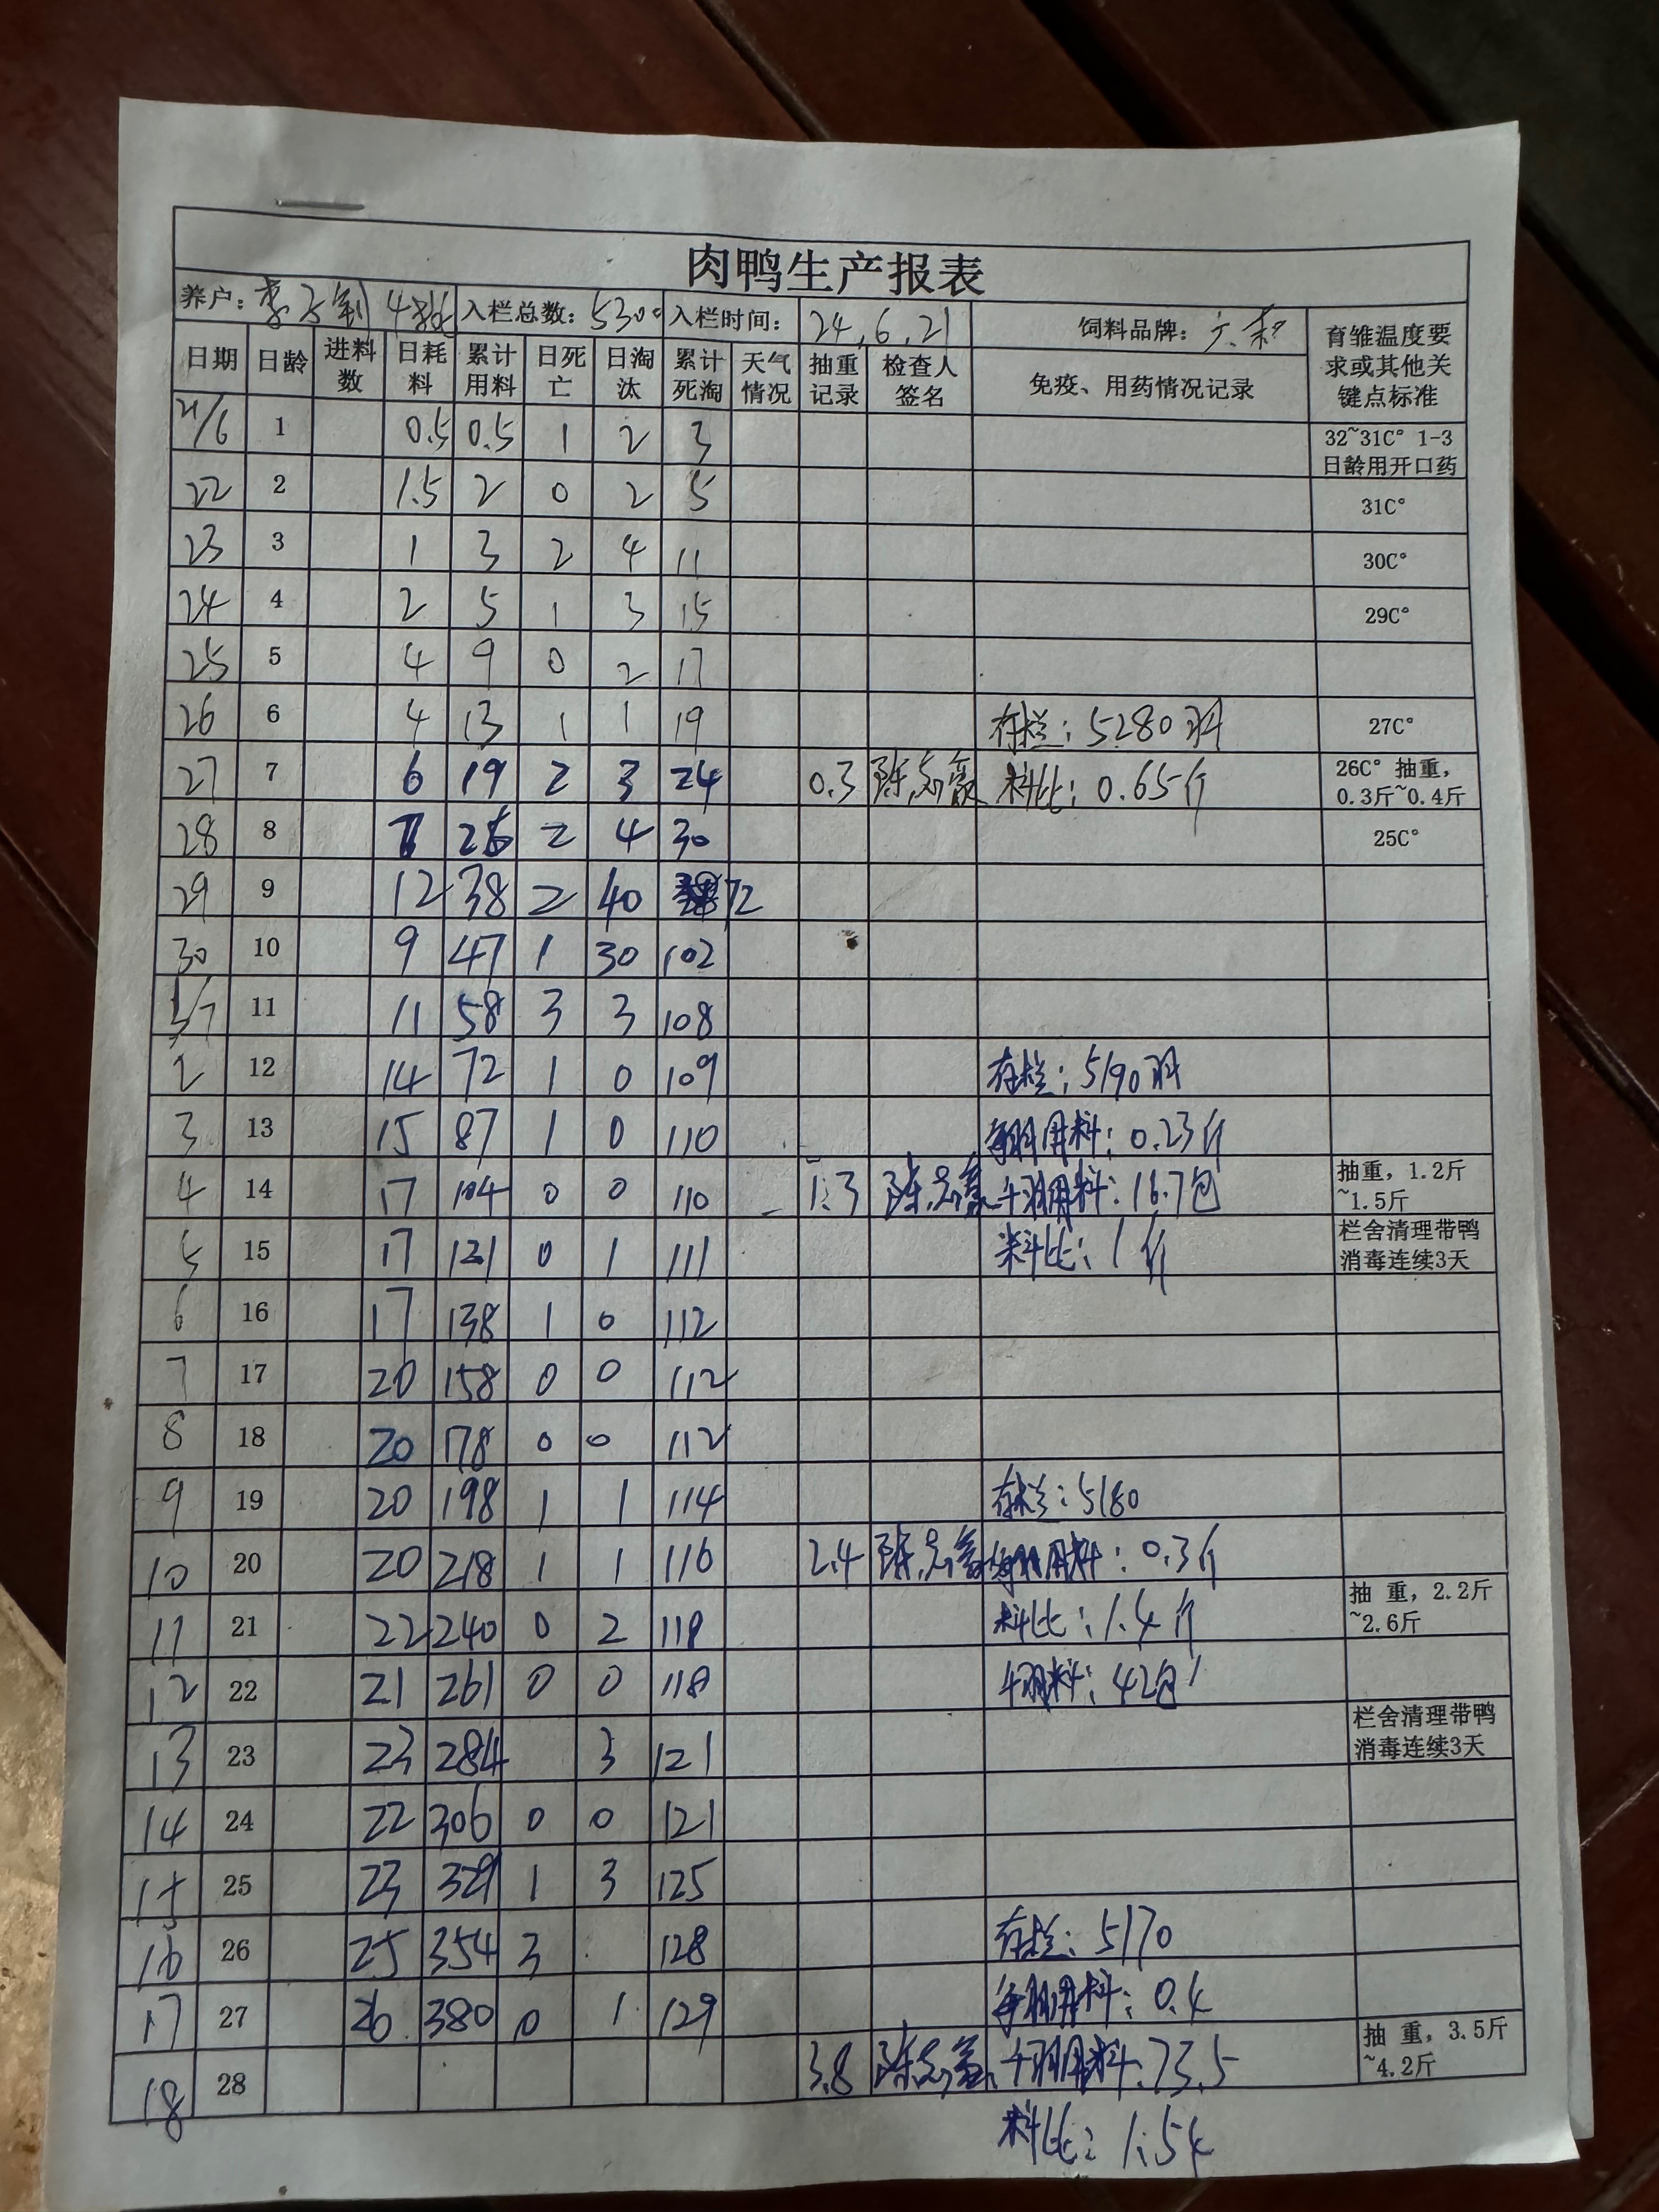 肉鸭生产报表
养户: 4 入栏总数: 5300 入栏时间: 24.6.21 饲料品牌: 六和 育雏温度要求或其他关键点标准
日期 日龄 进料数 日耗料 累计用料 日死亡 日淘汰 累计死淘 天气情况 抽重记录 检查人签名 免疫、用药情况记录
21/6 1 0.5 0.5 1 2 3 32~31C° 1-3日龄用开口药
22 2 1.5 2 0 2 5 31C°
23 3 1 3 2 4 11 30C°
24 4 2 5 1 3 15 29C°
25 5 4 9 0 2 17
26 6 4 13 1 1 19 存栏: 5280羽 27C°
27 7 6 19 2 3 24 0.3 陈志豪 料比: 0.65斤 26C° 抽重, 0.3斤~0.4斤
28 8 7 26 2 4 30 25C°
29 9 12 38 2 40 72
30 10 9 47 1 30 102
1/7 11 11 58 3 3 108
2 12 14 72 1 0 109 存栏: 5190羽
3 13 15 87 1 0 110 每羽用料: 0.23斤
4 14 17 104 0 0 110 1.3 陈志豪 千羽用料: 16.7包 抽重, 1.2斤~1.5斤
5 15 17 121 0 1 111 料比: 1斤 栏舍清理带鸭消毒连续3天
6 16 17 138 1 0 112
7 17 20 158 0 0 112
8 18 20 178 0 0 112
9 19 20 198 1 1 114 存栏: 5180
10 20 20 218 1 1 116 2.4 陈志豪 每羽用料: 0.3斤
11 21 22 240 0 2 118 料比: 1.4斤 抽 重, 2.2斤~2.6斤
12 22 21 261 0 0 118 千羽料: 42包
13 23 23 284 3 121 栏舍清理带鸭消毒连续3天
14 24 22 306 0 0 121
15 25 23 329 1 3 125
16 26 25 354 3 128 存栏: 5170
17 27 26 380 0 1 129 每羽用料: 0.4
18 28 3.8 陈志豪 千羽用料: 73.5 抽 重, 3.5斤~4.2斤
料比: 1.54